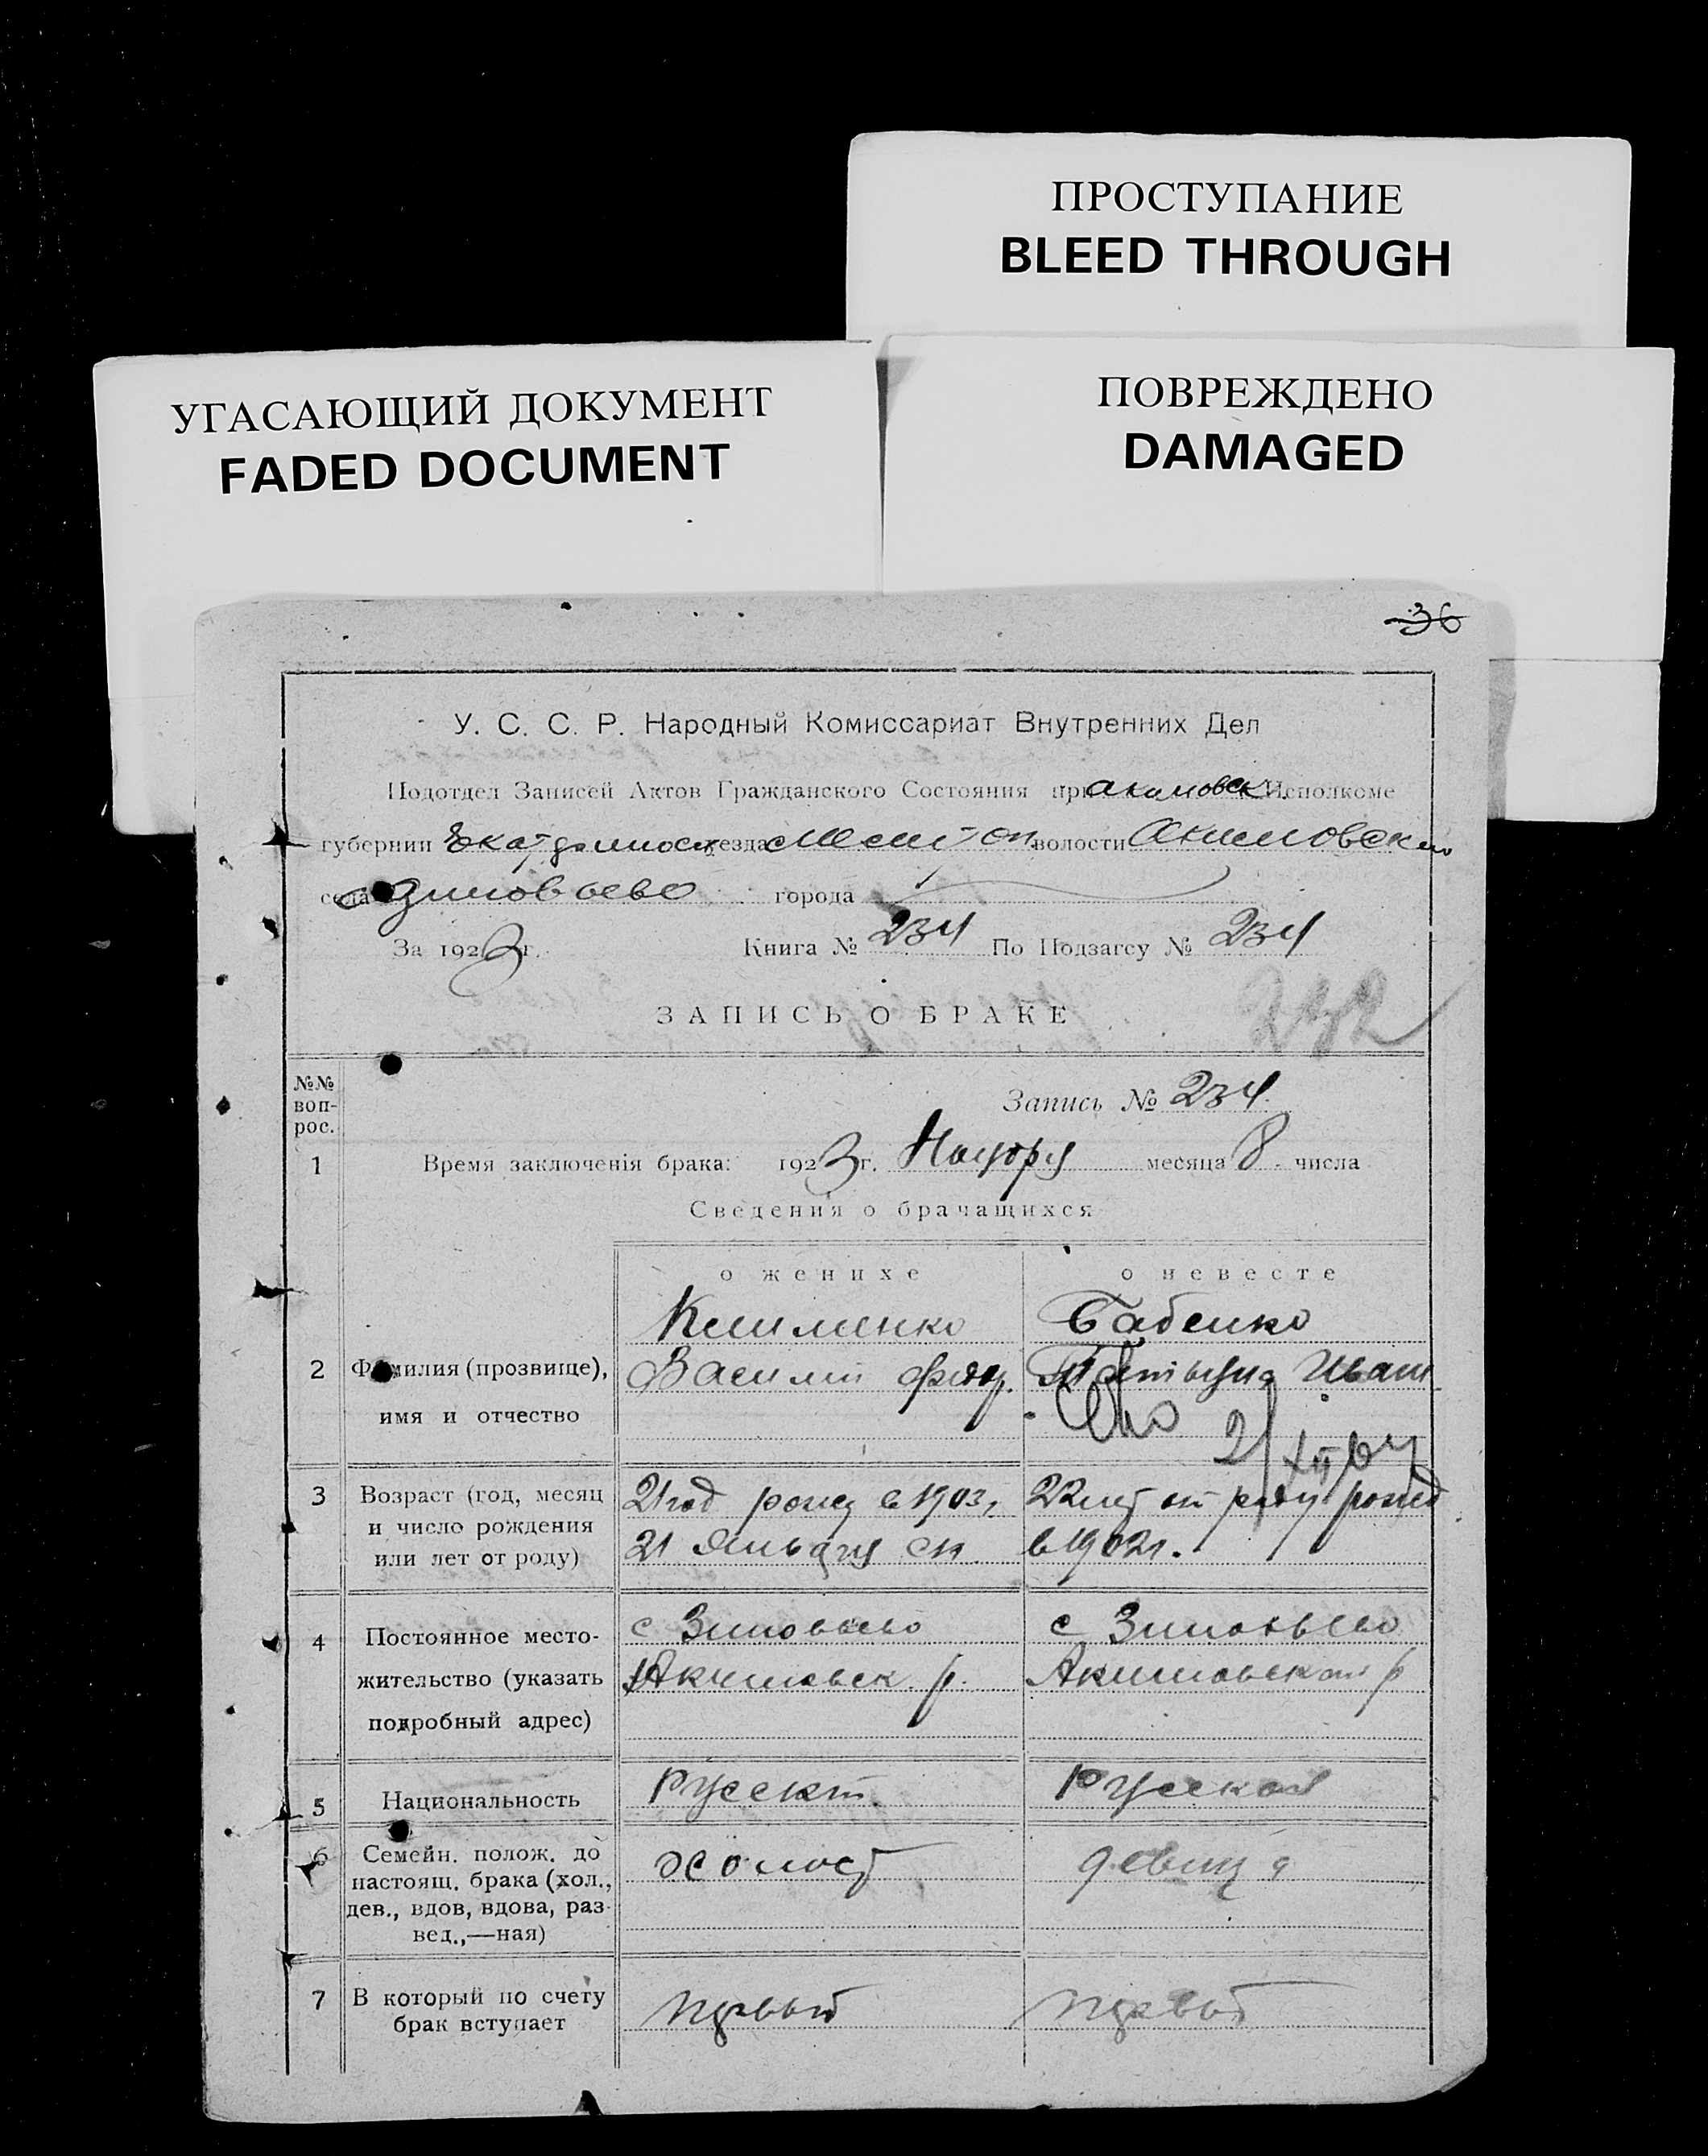 ПРОСТУПАНИЕ
BLEED THROUGH
УГАСАЮЩИЙ ДОКУМЕНТ
FADED DOCUMENT
ПОВРЕЖДЕНО
DAMAGED
36
У. С. С. Р. Народный Комиссариат Внутренних Дел
Подотдел Записей Актов Гражданского Состояния при Акимовск. Исполкоме
губернии уезда Мелитоп. волости Акимовской
села Зиновьево города
За 1923 г. Книга № 234 По Подзагсу № 234
ЗАПИСЬ О БРАКЕ
232
№№ воп-рос.
Запись № 234.
1 Время заключенія брака: 1923 г. Ноября месяца 8 числа
Сведения о брачащихся
о женихе о невесте
Клименко Бабенко
2 Фамилия (прозвище), Василий Фед. Татьяна Иван
имя и отчество
2/XII
3 Возраст (год, месяц 21 год рожд в 1903 г. 22 лет от роду рожд
и число рождения 21 Января в 1902 г.
или лет от роду)
с Зиновьево с Зиновьево
4 Постоянное место-
жительство (указать Акимовск. р. Акимовской р
подробный адрес)
5 Национальность Русский. Русская
6 Семейн. полож. до холост девица
настоящ. брака (хол.,
дев., вдов, вдова, раз-
вед.,—ная)
7 В который по счету первый первый
брак вступает